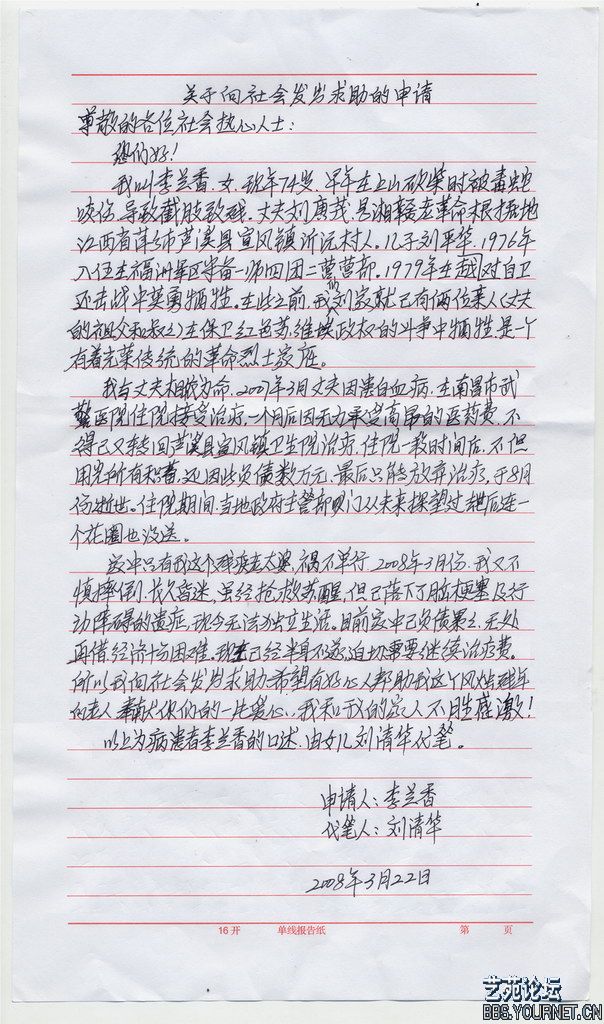 关于向社会发出求助的申请
尊敬的各位社会热心人士：
您们好！
我叫李兰香、女、现年74岁、早年在上山砍柴时被毒蛇
咬伤、导致截肢致残、丈夫刘康茂、是湘赣老革命根据地
江西省萍乡市芦溪县宣风镇沂沅村人。儿子刘平华、1976年
入伍在福州军区守备一师四团二营营部、1979年在越对自卫
还击战中英勇牺牲。在此之前、我们刘家就已有俩位亲人(丈夫
的祖父和叔叔)在保卫红色苏维埃政权的斗争中牺牲、是一个
有着光荣传统的革命烈士家庭。
我与丈夫相依为命、2007年3月丈夫因患白血病、在南昌市武
警医院住院接受治疗、一个月后因无力承受高昂的医药费、不
得已又转回芦溪县宣风镇卫生院治疗、住院一段时间后、不但
用光所有积蓄、还因此负债数万元、最后只能放弃治疗、于8月
份逝世。住院期间、当地政府主管部门从未来探望过、死后连一
个花圈也没送。
家中只有我这个残疾老太婆、祸不单行、2008年3月份、我又不
慎摔倒、长久昏迷、虽经抢救苏醒、但已落下了脑梗塞及行
动障碍的遗症、现今无法独立生活。目前家中已负债累累、无处
再借经济十分困难、现在已经半身不遂、迫切需要继续治疗费。
所以我向社会发出求助、希望有好心人帮助我这个风烛残年
的老人、奉献你们的一片爱心、我和我的家人不胜感激！
以上为病患者李兰香的口述、由女儿刘清华代笔。
申请人：李兰香
代笔人：刘清华
2008年3月22日
16开 单线报告纸 第 页
艺苑论坛
BBS.YOURNET.CN